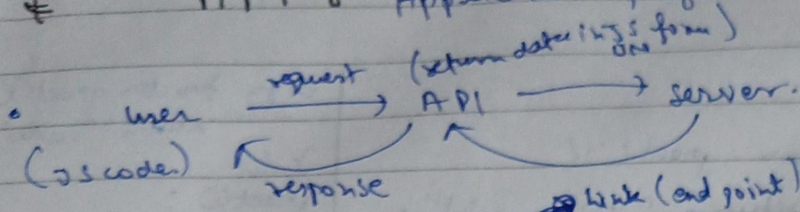 (return data in JSON form)
request
user API server.
(JS code)
response
link (end point)